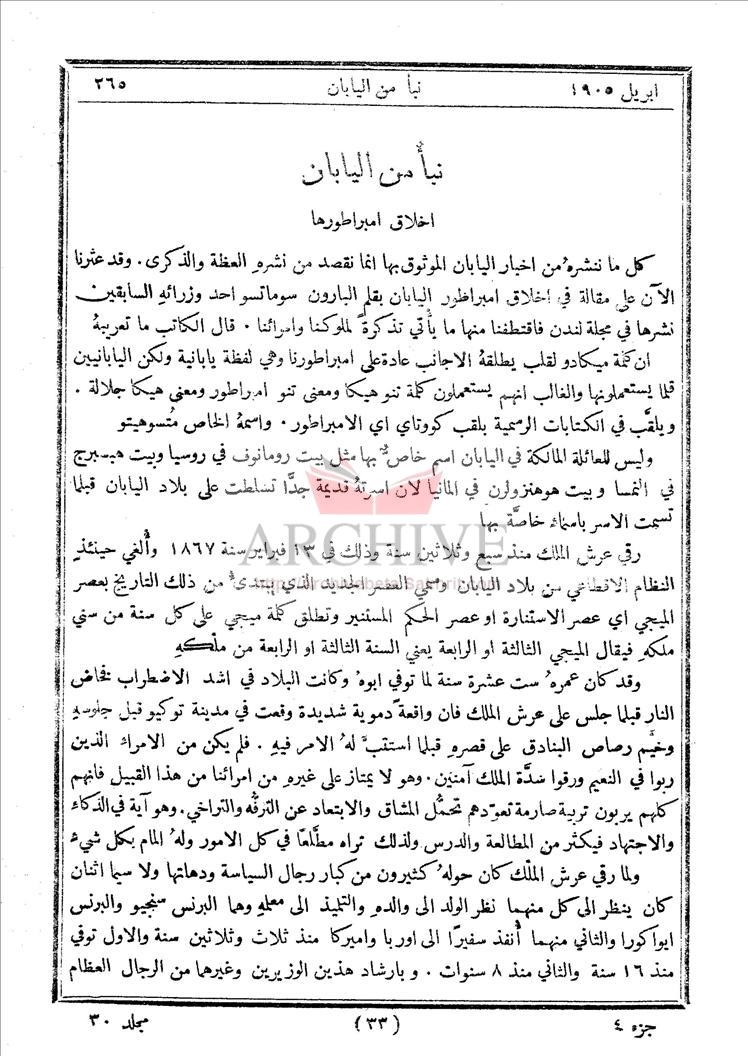 ابريل ١٩٠٥ نبأ من اليابان ٢٦٥
نبأ من اليابان
اخلاق امبراطورها
كل ما ننشرهُ من اخبار اليابان الموثوق بها انما نقصد من نشرهِ العظة والذكرى . وقد عثرنا
الآن على مقالة في اخلاق امبراطور اليابان بقلم البارون سوماتسو احد وزرائهِ السابقين
نشرها في مجلة لندن فاقتطفنا منها ما يأتي تذكرةً لملوكنا وامرائنا . قال الكاتب ما تعريبهُ
ان كلمة ميكادو لقلب يطلقهُ الاجانب عادة على امبراطورنا وهي لفظة يابانية ولكن اليابانيين
قلما يستعملونها والغالب انهم يستعملون كلمة تنو هيكا ومعنى تنو امبراطور ومعنى هيكا جلالة .
ويلقَّب في الكتابات الرسمية بلقب كووتاي اي الامبراطور . واسمهُ الخاص مُتسوهيتو
وليس للعائلة المالكة في اليابان اسم خاصٌّ بها مثل بيت رومانوف في روسيا وبيت هبسبرج
في النمسا وبيت هوهنزولرن في المانيا لان اسرتهُ قديمة جدًّا تسلطت على بلاد اليابان قبلما
تسمت الاسر باسماء خاصَّة بها
ARCHIVE
رقي عرش الملك منذ سبع وثلاثين سنة وذلك في ١٣ فبراير سنة ١٨٦٧ وأُلغي حينئذٍ
النظام الاقطاعي من بلاد اليابان وسمي العصر الجديد الذي يبتدئُ من ذلك التاريخ بعصر
الميجي اي عصر الاستنارة او عصر الحكم المستنير وتطلق كلمة ميجي على كل سنة من سني
ملكهِ فيقال الميجي الثالثة او الرابعة يعني السنة الثالثة او الرابعة من ملكهِ
وقد كان عمرهُ ست عشرة سنة لما توفي ابوهُ وكانت البلاد في اشد الاضطراب فخاض
النار قبلما جلس على عرش الملك فان واقعةً دموية شديدة وقعت في مدينة توكيو قبل جلوسهِ
وخيَّم رصاص البنادق على قصرهِ قبلما استتبَّ لهُ الامر فيهِ . فلم يكن من الامراء الذين
ربوا في النعيم ورقوا سُدَّة الملك آمنين . وهو لا يمتاز على غيرهِ من امرائنا من هذا القبيل فانهم
كلهم يربون تربية صارمة تعوّدهم تحمُّل المشاق والابتعاد عن الترفُّه والتراخي . وهو آية في الذكاء
والاجتهاد فيكثر من المطالعة والدرس ولذلك تراه مطَّلعًا في كل الامور ولهُ المام بكل شيءٍ
ولما رقي عرش الملك كان حولهُ كثيرون من كبار رجال السياسة ودهاتها ولا سيما اثنان
كان ينظر الى كل منهما نظر الولد الى والدهِ والتلميذ الى معلمهِ وهما البرنس سنجيو والبرنس
ايواكورا والثاني منهما أُنفذ سفيرًا الى اوربا واميركا منذ ثلاث وثلاثين سنة والاول توفي
منذ ١٦ سنة والثاني منذ ٨ سنوات . وبارشاد هذين الوزيرين وغيرهما من الرجال العظام
جزء ٤ (٣٣) مجلد ٣٠